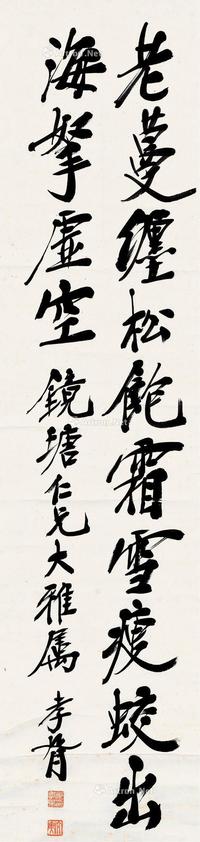 老蔓缠松饱霜雪瘦蛟出
海拏虚空 镜塘仁兄大雅属 孝胥